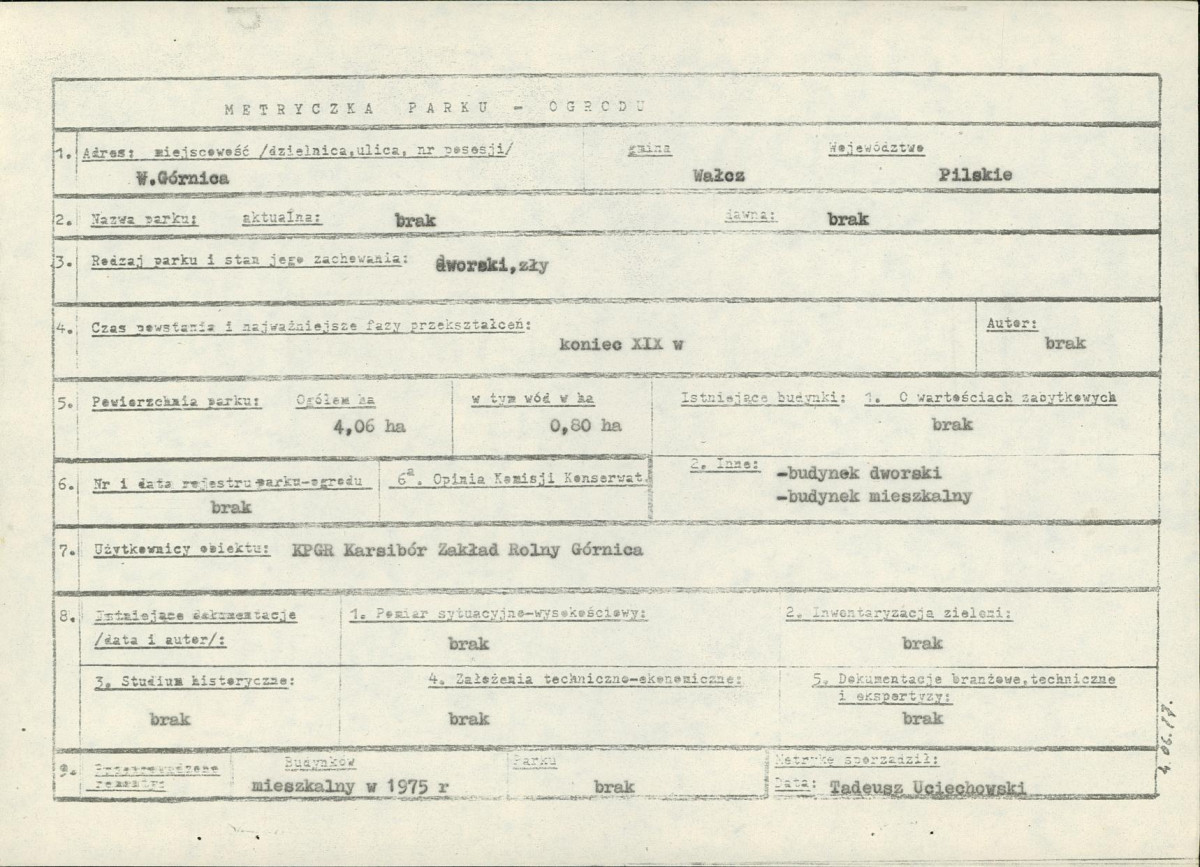 METRYCZKA PARKU - OGRODU
1. Adres: miejscowość /dzielnica, ulica, nr posesji/ gmina Województwo
W.Górnica Wałcz Pilskie
2. Nazwa parku: aktualna: brak dawna: brak
3. Rodzaj parku i stan jego zachowania: dworski, zły
4. Czas powstania i najważniejsze fazy przekształceń: Autor:
koniec XIX w brak
5. Powierzchnia parku: Ogółem ha w tym wód w ha Istniejące budynki: 1. O wartościach zabytkowych
4,06 ha 0,80 ha brak
2. Inne: -budynek dworski
-budynek mieszkalny
6. Nr i data rejestru parku-ogrodu 6a. Opinia Komisji Konserwat.
brak
7. Użytkownicy obiektu: KPGR Karsibór Zakład Rolny Górnica
8. Istniejące dokumentacje 1. Pomiar sytuacyjno-wysokościowy: 2. Inwentaryzacja zieleni:
/data i autor/: brak brak
3. Studium historyczne: 4. Założenia techniczno-ekonomiczne: 5. Dokumentacje branżowe, techniczne
i ekspertyzy:
brak brak brak
9. Przeprowadzone Budynków Parku Metrykę sporządził:
remonty: mieszkalny w 1975 r brak Data: Tadeusz Uciechowski